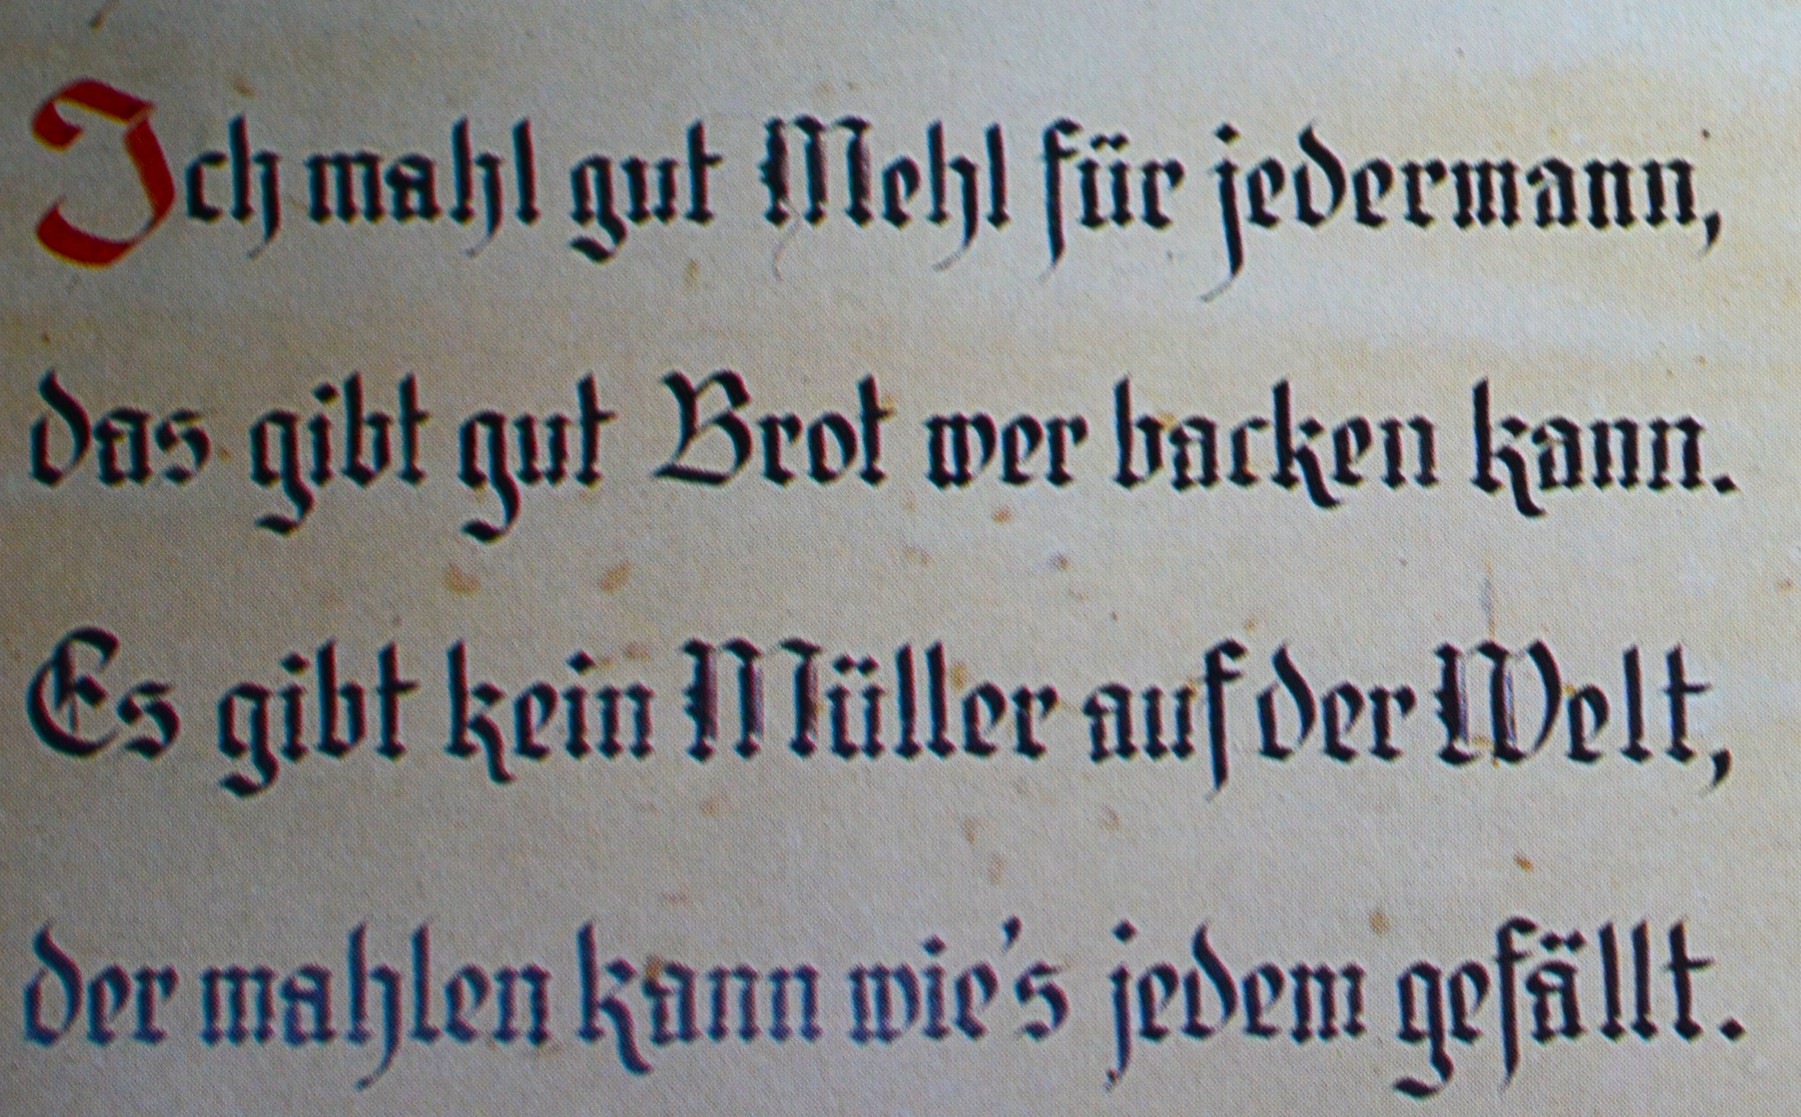 Ich mahl gut Mehl für jedermann,
das gibt gut Brot wer backen kann.
Es gibt kein Müller auf der Welt,
der mahlen kann wie's jedem gefällt.